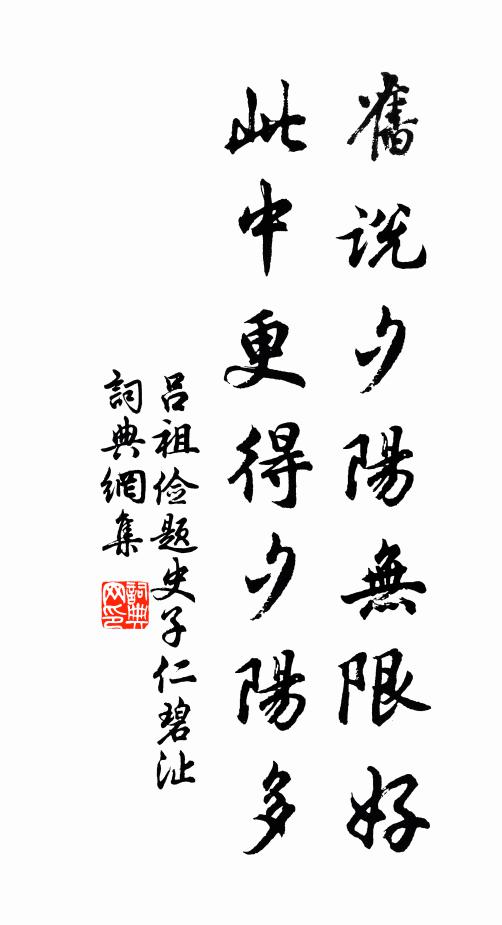 舊說夕陽無限好
此中更得夕陽多
吕祖俭题史子仁碧沚
詞典網集
詞典网印